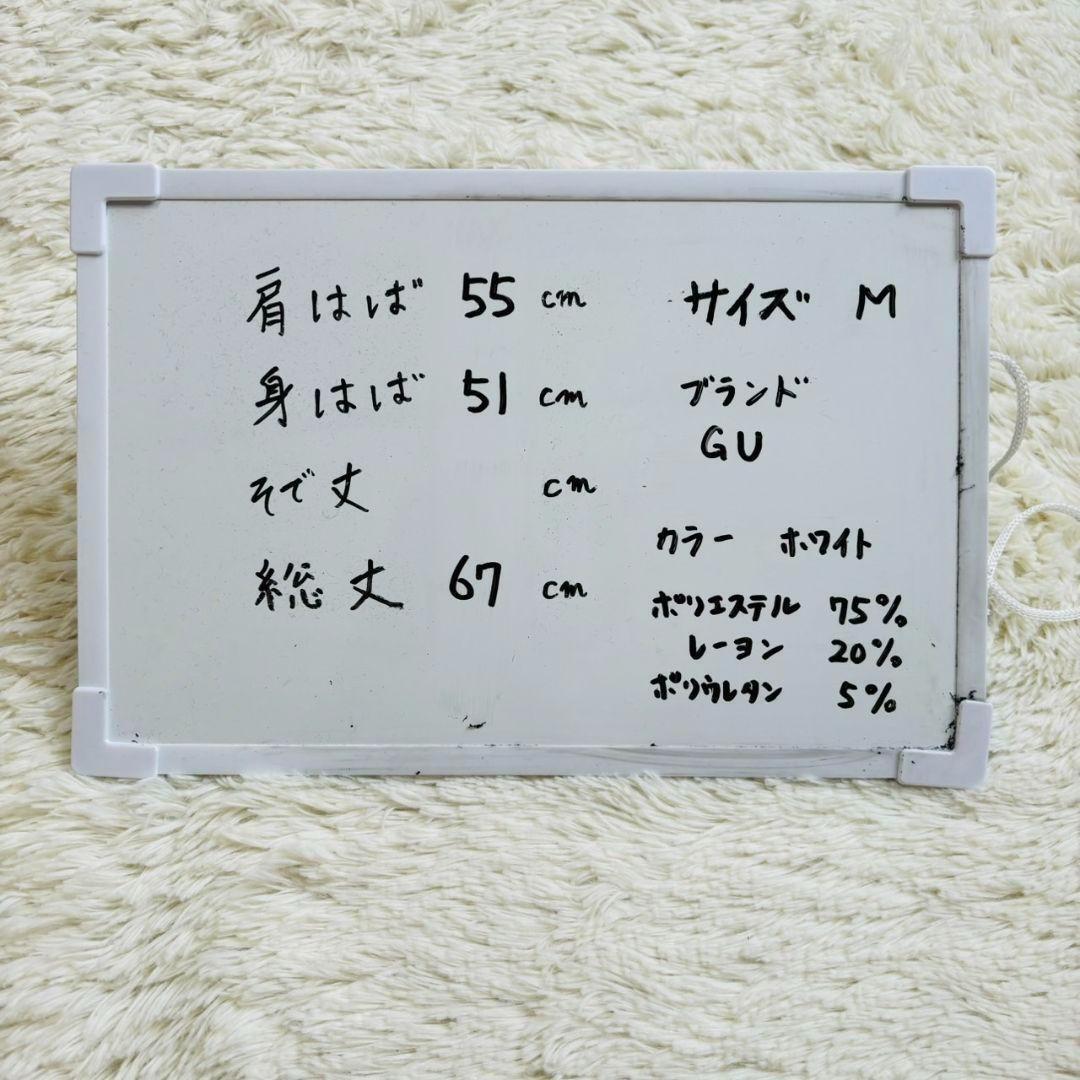 肩はば 55 cm
身はば 51 cm
そで丈 cm
総丈 67 cm
サイズ M
ブランド
GU
カラー ホワイト
ポリエステル 75%
レーヨン 20%
ポリウレタン 5%